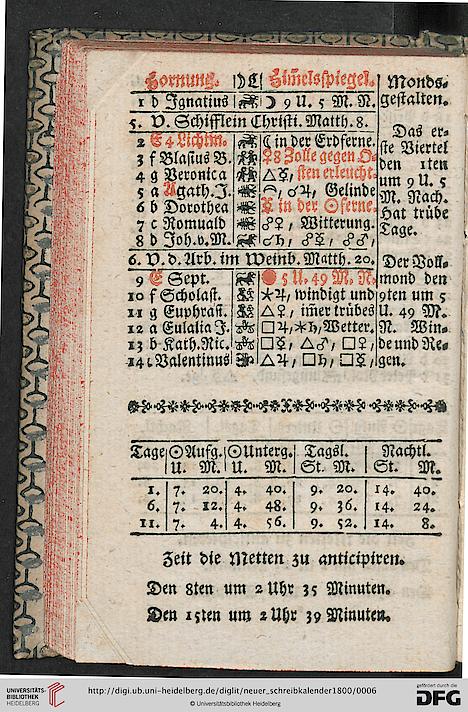 Hornung. Himelsspiegel. Monds-
1 b Ignatius ☽ 9 U. 5 M. N. gestalten.
5. V. Schifflein Christi. Matth. 8.
2 E 4 Lichtm. ☾ in der Erdferne.
3 f Blasius B. ♀ 8 Zolle gegen O-
4 g Veronica △☿, sten erleucht.
5 a Agath. J. ♂♃, Gelinde
6 b Dorothea ☿ in der ☉ferne.
7 c Romuald ☍♀, Witterung.
8 d Joh. v. M. ☍♄, ☍☿, ☍♂,
6. V. d. Arb. im Weinb. Matth. 20.
9 E Sept. 5 U. 49 M. N.
10 f Scholast. ⚹♃, windigt und
11 g Euphrasi. △♀, im̃er trübes
12 a Eulalia J. □♃, ⚹♄, Wetter.
13 b Kath. Ric. □☿, △♂, □♀,
14 c Valentinus △♃, □♄, □☿,
Das er-
ste Viertel
den 1ten
um 9 U. 5
M. Nach.
Hat trübe
Tage.
Der Voll-
mond den
9ten um 5
U. 49 M.
N. Win-
de und Re-
gen.
Tage ☉Aufg. ☉Unterg. Tagsl. Nachtl.
U. M. U. M. St. M. St. M.
1. 7. 20. 4. 40. 9. 20. 14. 40.
6. 7. 12. 4. 48. 9. 36. 14. 24.
11. 7. 4. 4. 56. 9. 52. 14. 8.
Zeit die Metten zu anticipiren.
Den 8ten um 2 Uhr 35 Minuten.
Den 15ten um 2 Uhr 39 Minuten.
UNIVERSITÄTS-
BIBLIOTHEK
HEIDELBERG
http://digi.ub.uni-heidelberg.de/diglit/neuer_schreibkalender1800/0006
© Universitätsbibliothek Heidelberg
gefördert durch die
DFG